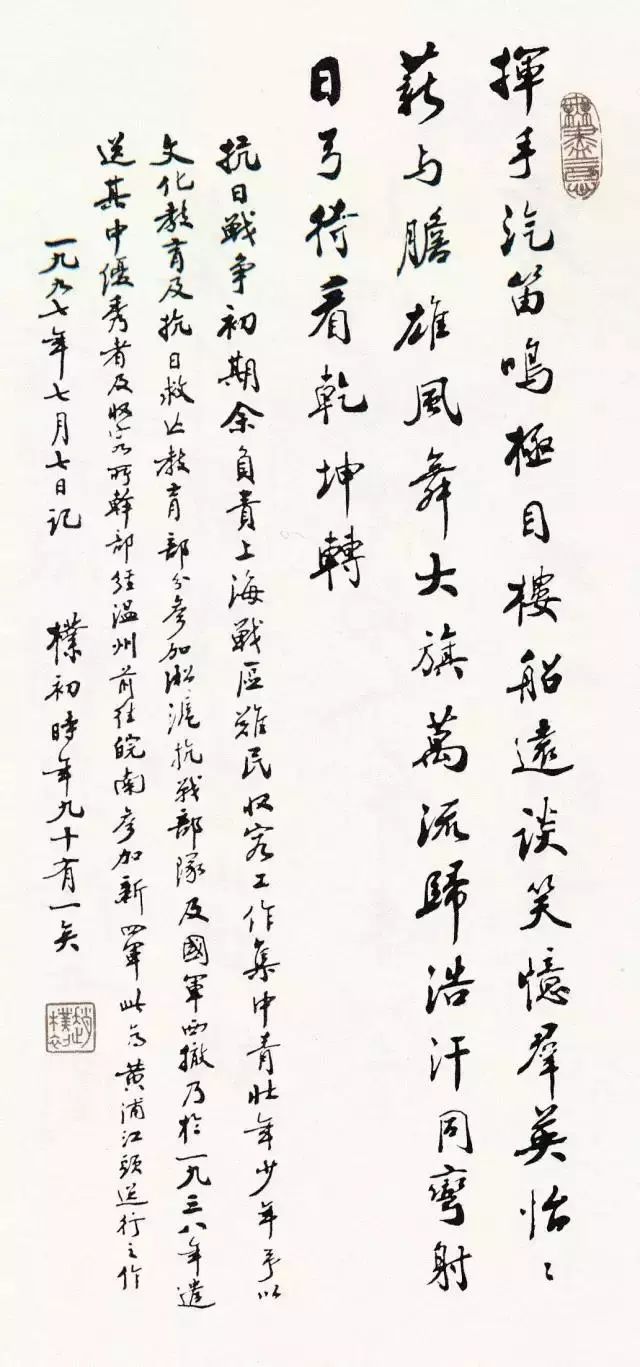 揮手汽笛鳴極目樓船遠談笑憶羣英怡〻
薪与膽雄風舞大旗萬流歸浩汗同彎射
日弓待看乾坤轉
抗日戰争初期余負責上海戰區難民收容工作集中青壯年少年予以
文化教育及抗日救亡教育部分參加淞滬抗戰部隊及國軍西撤乃於一九三八年遣
送其中優秀者及收容所幹部經温州前往皖南參加新四軍此為黄浦江頭送行之作
一九九七年七月七日記
樸初時年九十有一矣
趙樸初